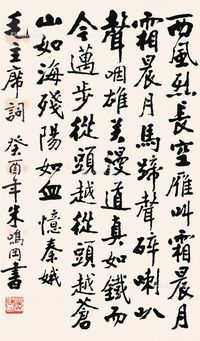 西風烈長空雁叫霜晨月
霜晨月馬蹄聲碎喇叭
聲咽雄关漫道真如鐵而
今邁步從頭越從頭越蒼
山如海殘陽如血憶秦娥
毛主席詞 癸酉年朱鳴岡書